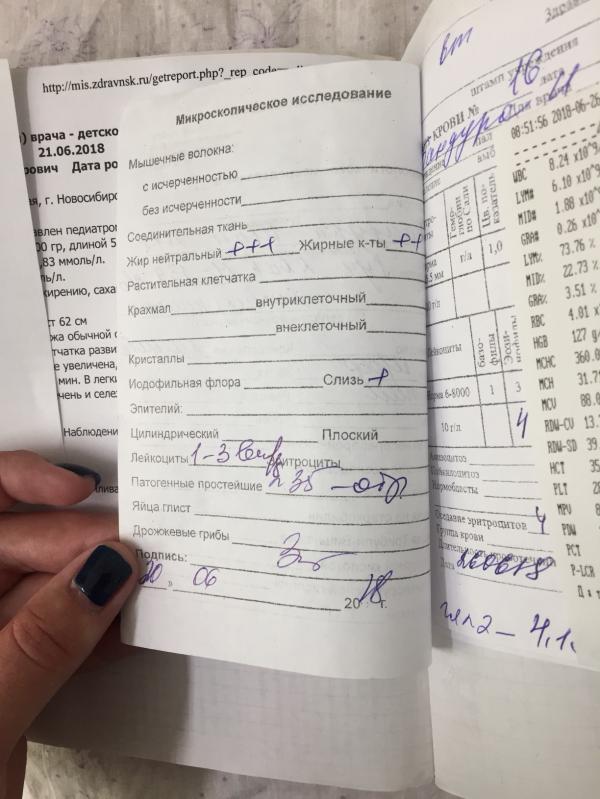 http://mis.zdravnsk.ru/getreport.php?_rep_code=
врача - детско
21.06.2018
рович Дата ро
г. Новосибирс
авлен педиатром
00 гр, длиной 5
,83 ммоль/л.
ль/л.
жирению, саха
ст 62 см
жа обычной о
тчатка разви
е увеличена,
мин. В легки
чень и селез
Наблюдени
Микроскопическое исследование
Мышечные волокна:
с исчерченностью
без исчерченности
Соединительная ткань
Жир нейтральный +++ Жирные к-ты ++
Растительная клетчатка
Крахмал внутриклеточный
внеклеточный
Кристаллы
Иодофильная флора Слизь +
Эпителий:
Цилиндрический Плоский
Лейкоциты 1-3 в п/з ритроциты
Патогенные простейшие я 35 – отр
Яйца глист
Дрожжевые грибы
Подпись:
20 » 06 2018 г.
Здрав
штамп учреждения
КРОВИ № 16 дата
08:51:56 2018-06-26
WBC 8.24 x10^9
LYM# 6.10 x10^9
MID# 1.88 x10^9
GRA# 0.26 x10^9
LYM% 73.76 %
MID% 22.73 %
GRA% 3.51 %
RBC 4.01 x1
HGB 127 g/
MCHC 360.0
MCH 31.7
MCV 88.0
RDW-CV 13.7
RDW-SD 39.
HCT 35
PLT 28
MPV 8
PDW
PCT
P-LCR
Гемо-
глобин
по Сали
Цв. по-
казатель
г/л 1,0
Лейкоциты
базо-
филы
Эози-
нофилы
Норма 6-8000 1 3
10 г/л 4
Оседание эритроцитов 4
Группа крови
Длительность кровотечения
Дата 260618
– 4,1.